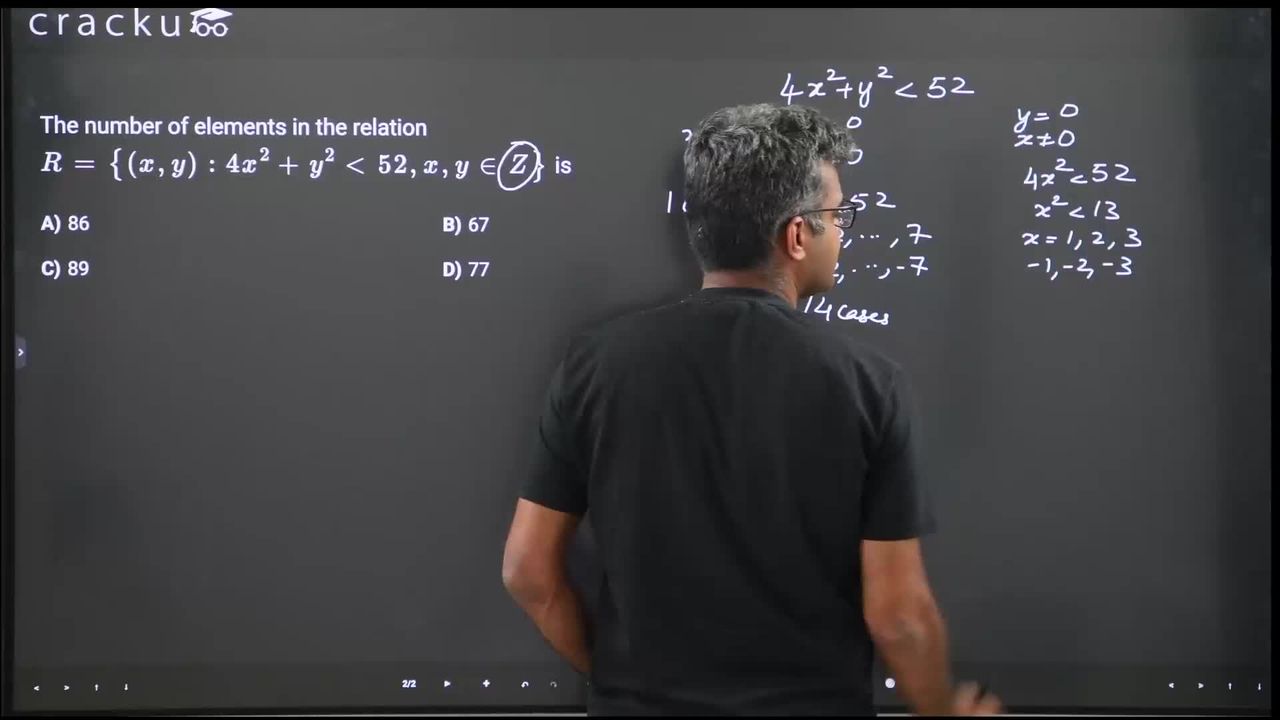 cracku
The number of elements in the relation
R = {(x, y) : 4x² + y² < 52, x, y ∈ Z} is
A) 86
B) 67
C) 89
D) 77
4x²+y² < 52
0
0
52
, ..., 7
, ..., -7
14 cases
y = 0
x ≠ 0
4x² < 52
x² < 13
x = 1, 2, 3
-1, -2, -3
2/2